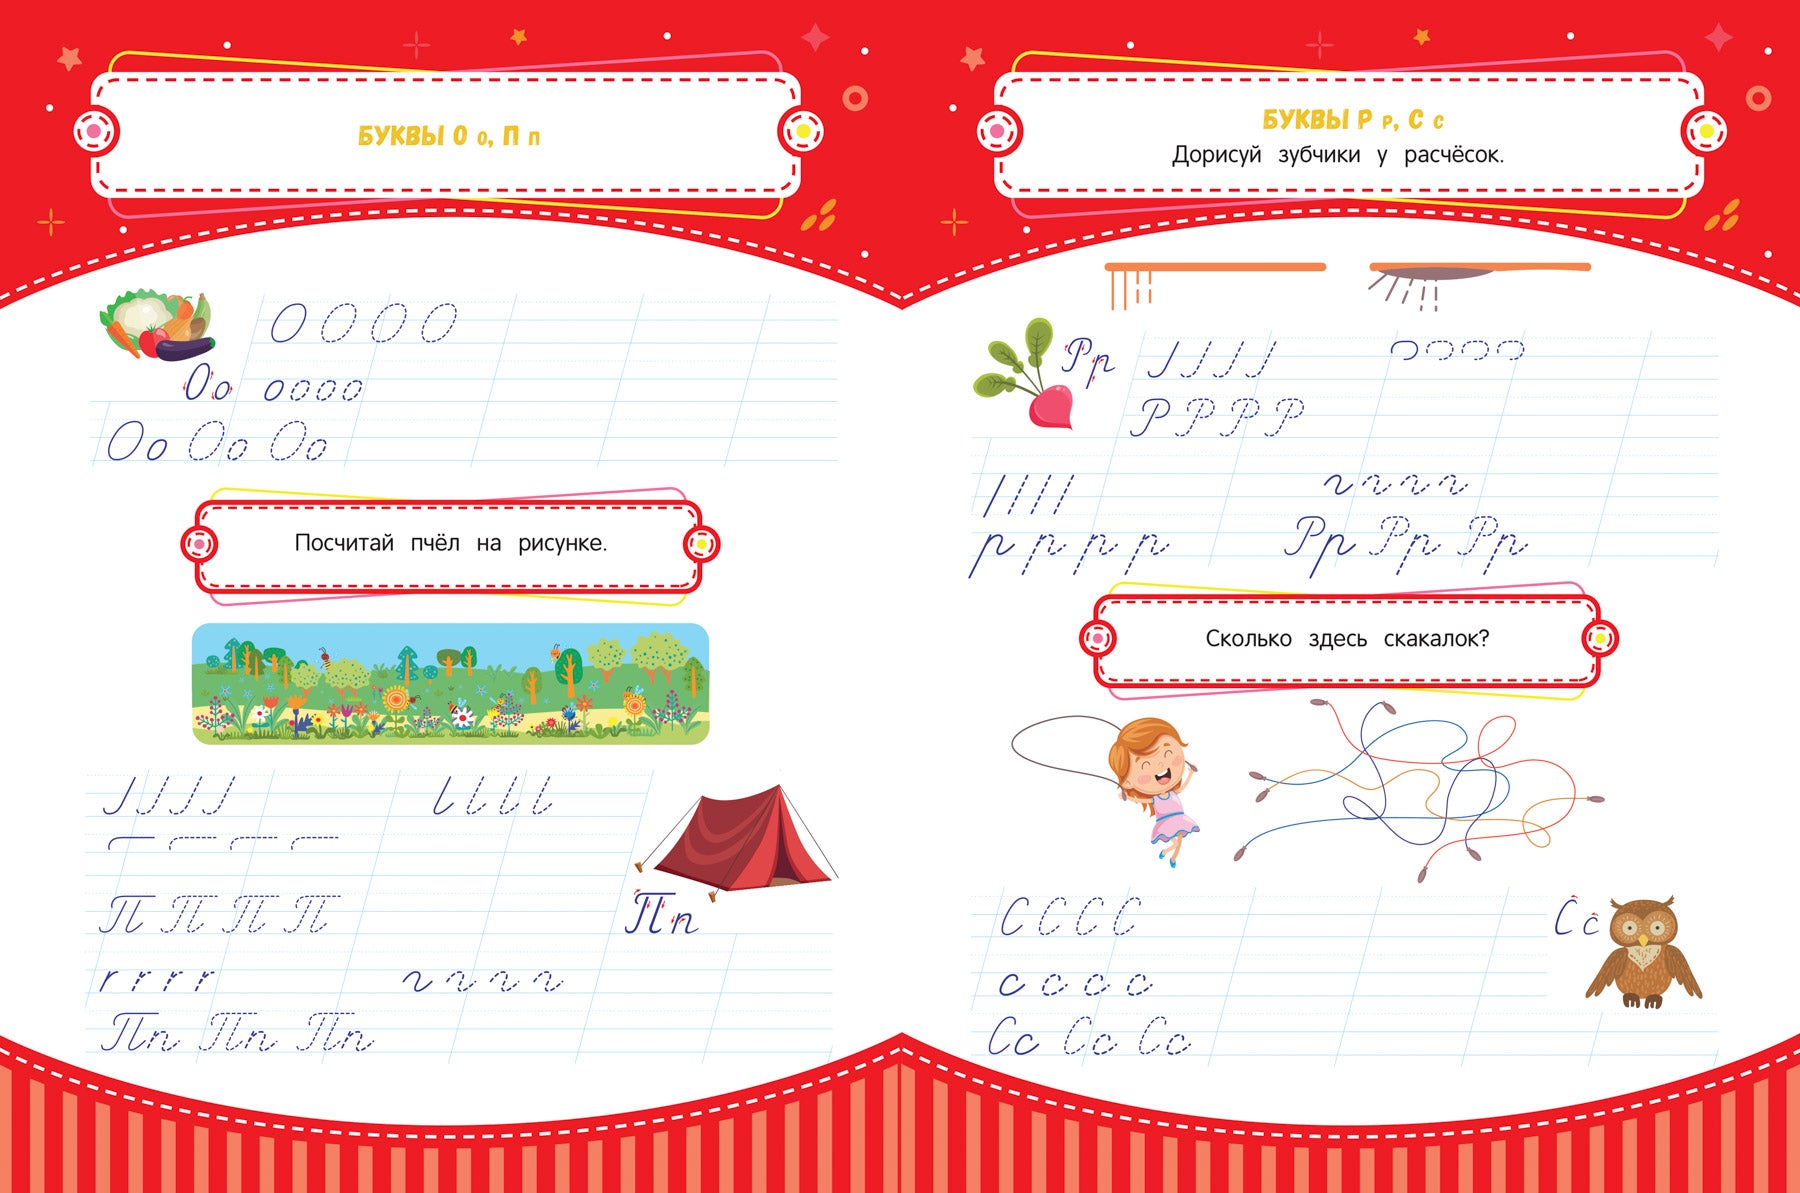 БУКВЫ О о, П п
О О О О
Оо о о о о
Оо Оо Оо
Посчитай пчёл на рисунке.
П П П П
Пп
Пп Пп Пп
БУКВЫ Р р, С с
Дорисуй зубчики у расчёсок.
Рр
Р Р Р Р
р р р р Рр Рр Рр
Сколько здесь скакалок?
С С С С Сс
с с с с
Сс Сс Сс